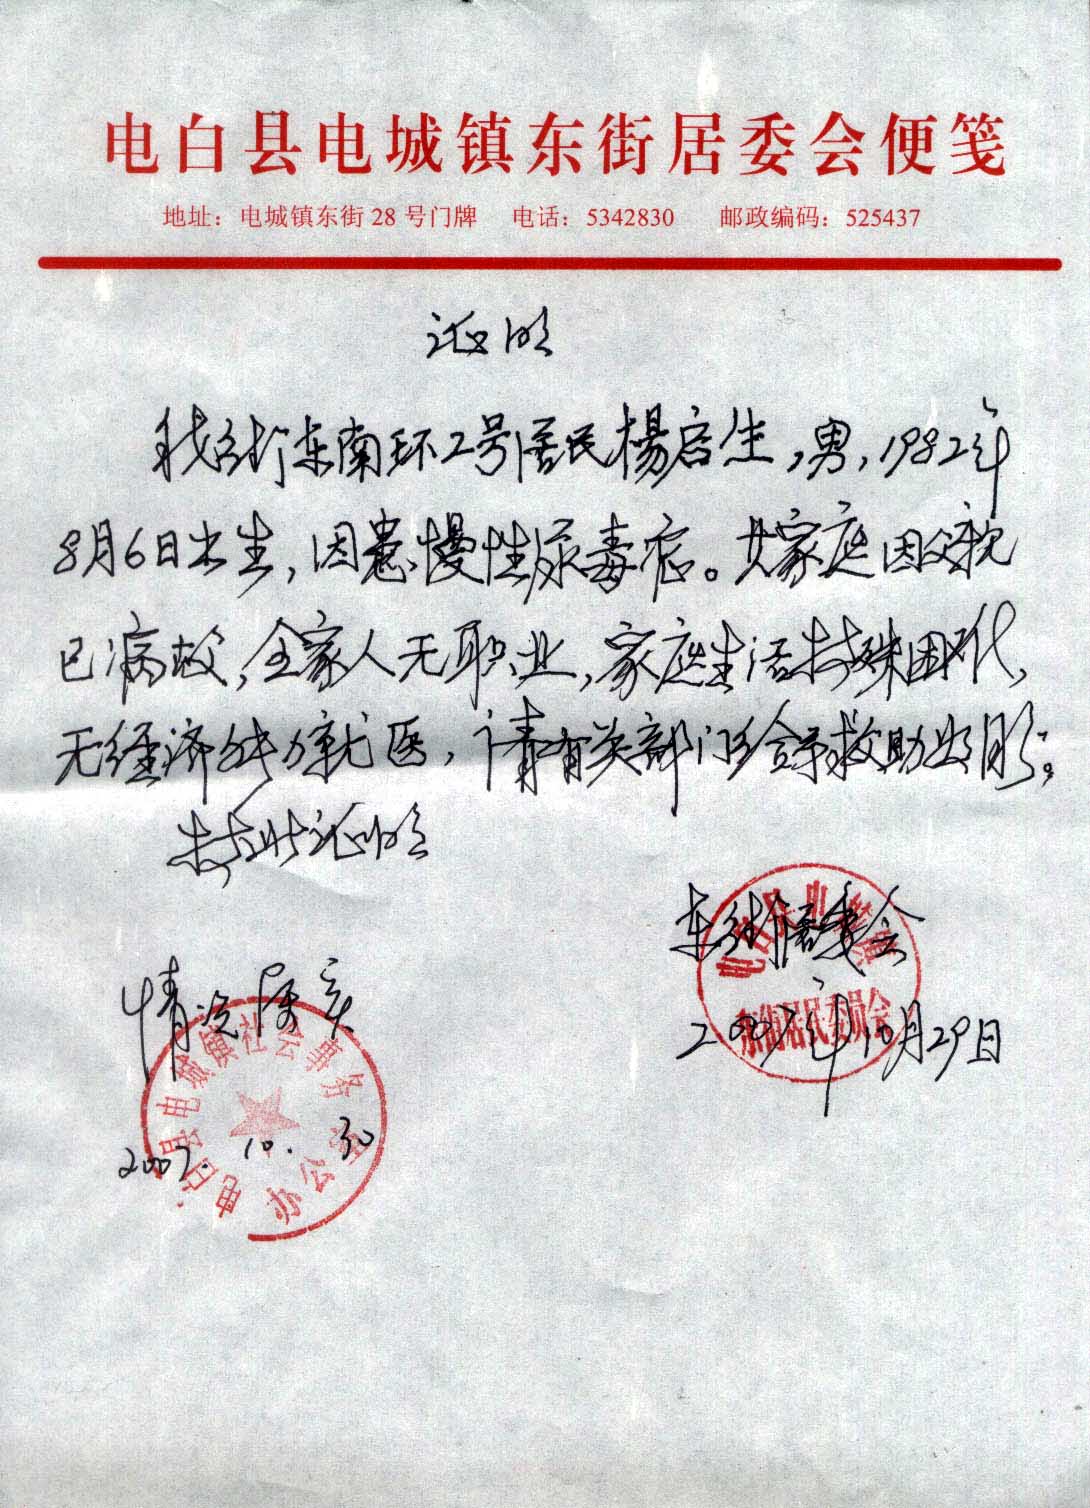 电白县电城镇东街居委会便笺
地址：电城镇东街28号门牌 电话：5342830 邮政编码：525437
证明
我街东南环2号居民楊启生，男，1982年
8月6日出生，因患慢性尿毒症。其家庭因父亲
已病故，全家人无职业，家庭生活特殊困难，
无经济能力就医，请有关部门给予救助为盼。
特此证明
东街居委会
2007年10月29日
电白县电城镇
东街居民委员会
情况属实
2007.10.30
电白县电城镇社会事务
办公室